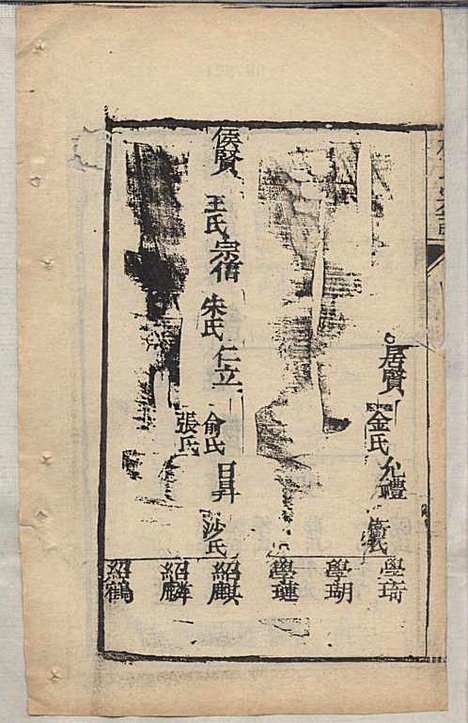 居賢
金氏
允禮
衛氏
學琦
學瑚
學璉
侯賢
王氏
宗信
朱氏
仁立
俞氏
張氏
日昇
沙氏
紹麒
紹麟
紹鶴